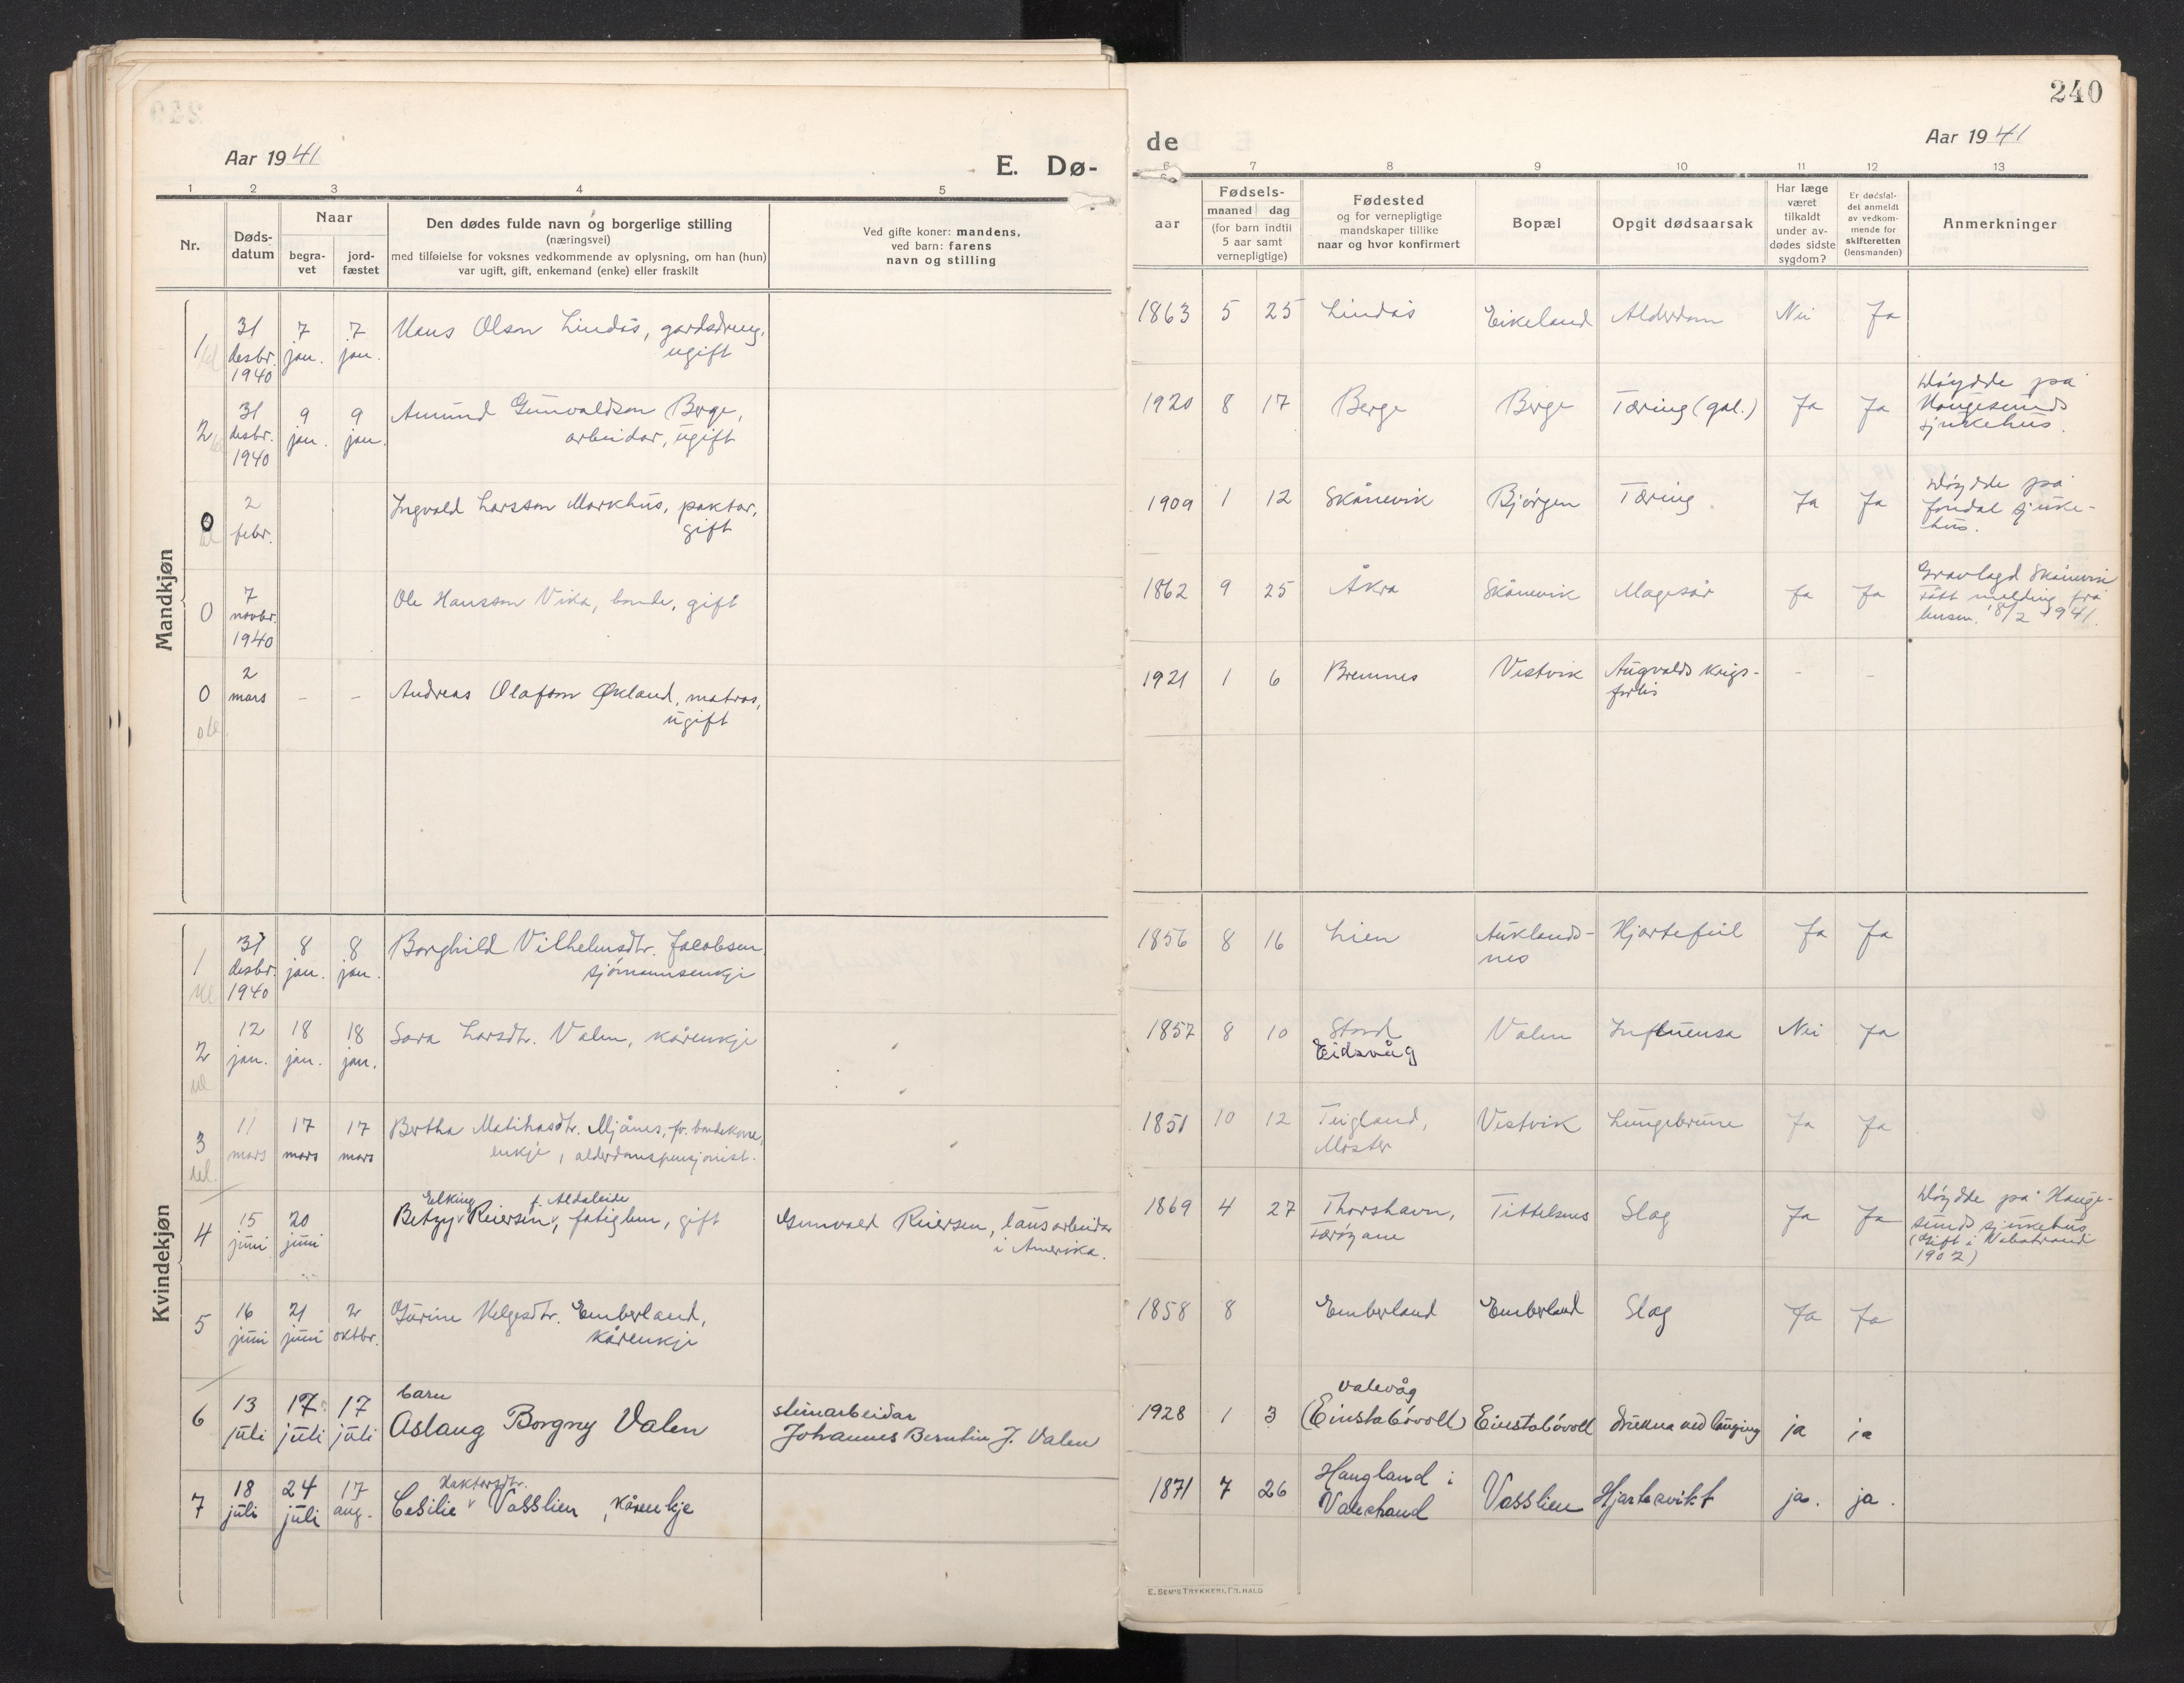 240
Aar 1941
E. Dø-
de
Aar 1941
1 2 3 4 5
6 7 8 9 10 11 12 13
Nr.
Døds-
datum
Naar
begra-
vet
jord-
fæstet
Den dødes fulde navn og borgerlige stilling
(næringsvei)
med tilføielse for voksnes vedkommende av oplysning, om han (hun)
var ugift, gift, enkemand (enke) eller fraskilt
Ved gifte koner: mandens,
ved barn: farens
navn og stilling
Fødsels-
aar
maaned dag
(for barn indtil
5 aar samt
vernepligtige)
Fødested
og for vernepligtige
mandskaper tillike
naar og hvor konfirmert
Bopæl
Opgit dødsaarsak
Har læge
været
tilkaldt
under av-
dødes sidste
sygdom?
Er dødsfal-
det anmeldt
av vedkom-
mende for
skifteretten
(lensmanden)
Anmerkninger
Mandkjøn
1
31
desbr.
1940
7
jan.
7
jan.
Hans Olson Lindås, gardsdreng,
ugift
1863 5 25 Lindås Eikeland Alderdom Nei Ja
2
31
desbr.
1940
9
jan.
9
jan.
Amund Gunvaldson Berge,
arbeidar, ugift
1920 8 17 Berge Berge Tæring (gal.) Ja Ja
Døydde på
Haugesunds
sjukehus.
0
2
febr.
Ingvald Larsson Markhus, paktar,
gift
1909 1 12 Skånevik Bjørgen Tæring Ja Ja
Døydde på
sjuke-
hus.
0
7
novbr.
1940
Ole Hansson Vika, bonde, gift
1862 9 25 Åkra Skånevik Magesår Ja Ja
Gravlagd Skånevik
Fått melding frå
lensm. 18/2 1941.
0
2
mars
- -
Andreas Olafson Økland, matros,
ugift
1921 1 6 Bremnes Vestvik Augvalds krigs-
forlis
- -
Kvindekjøn
1
31
desbr.
1940
8
jan.
8
jan.
Borghild Vilhelmsdtr. Jacobsen
sjømannsenkje
1856 8 16 Lien Auklands-
nes
Hjartefeil Ja Ja
2
12
jan.
18
jan.
18
jan.
Sara Larsdtr. Valen, kårenkje
1857 8 10 Stord
Eidsvåg
Valen Influensa Nei Ja
3
11
mars
17
mars
17
mars
Bertha Matihasdtr. Mjånes, fv. bondekone,
enkje, alderdomspensjonist.
1851 10 12 Teigland,
Moster
Vestvik Lungebrune Ja Ja
4
15
juni
20
juni
Elking f. Aldaleide
Betzy Reiersen, fatiglem, gift
Gunvald Reiersen, lausarbeidar
i Amerika.
1869 4 27 Thorshavn,
Færøyane
Tittelsnes Slag Ja Ja
Døydde på Hauge-
sunds sjukehus
(Gift i Valestrand
1902)
5
16
juni
21
juni
2
oktbr.
Gurine Helgesdtr. Emberland,
kårenkje
1858 8 Emberland Emberland Slag Ja Ja
6
13
juli
17
juli
17
juli
barn
Aslaug Borgny Valen
steinarbeidar
Johannes Berntin J. Valen
1928 1 3 Valevåg
(Einstabóvoll) Einstabóvoll drukna ved lauging ja ja
7
18
juli
24
juli
17
aug.
Haktorsdtr.
Cesilie Vasslien, kårenkje
1871 7 26 Haugland i
Valestrand
Vasslien Hjartesvikt ja. ja.
E. SEM'S TRYKKERI, FR.HALD